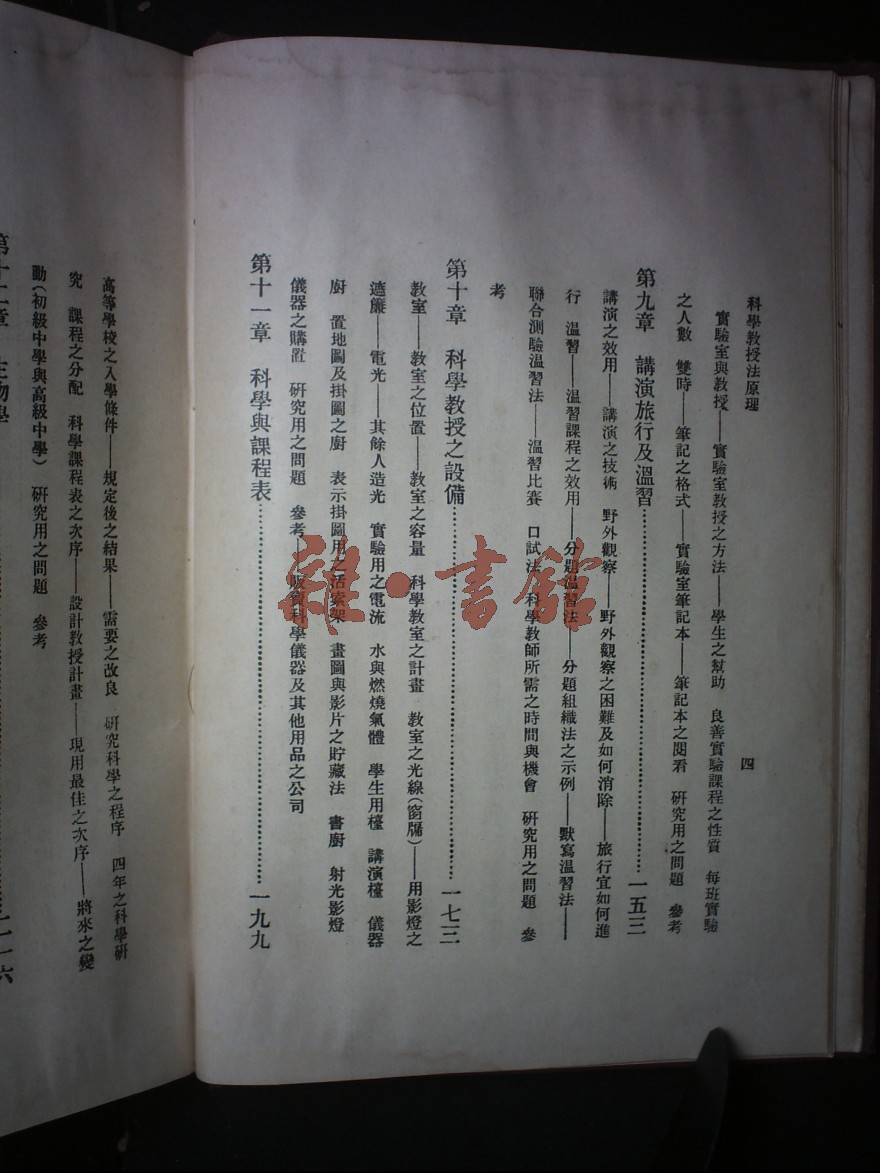 科學教授法原理
四
實驗室與教授——實驗室教授之方法——學生之幫助　良善實驗課程之性質　每班實驗
之人數　雙時——筆記之格式——實驗室筆記本——筆記本之閱看　研究用之問題　參考
第九章　講演旅行及溫習……一五三
講演之效用——講演之技術　野外觀察——野外觀察之困難及如何消除——旅行宜如何進
行　溫習——溫習課程之效用——分題溫習法——分題組織法之示例——默寫溫習法——
聯合測驗溫習法——溫習比賽　口試法　科學教師所需之時間與機會　研究用之問題　參
考
第十章　科學教授之設備……一七三
教室——教室之位置——教室之容量　科學教室之計畫　教室之光線(窗牖)——用影燈之
遮簾——電光——其餘人造光　實驗用之電流　水與燃燒氣體　學生用檯　講演檯　儀器
廚　置地圖及掛圖之廚　表示掛圖用之活索架　畫圖與影片之貯藏法　書廚　射光影燈
儀器之購置　研究用之問題　參考——販賣科學儀器及其他用品之公司
第十一章　科學與課程表……一九九
高等學校之入學條件——規定後之結果——需要之改良　研究科學之程序　四年之科學研
究　課程之分配　科學課程表之次序——設計教授計畫——現用最佳之次序——將來之變
動(初級中學與高級中學)　研究用之問題　參考
第十二章　生物學
雜·書館